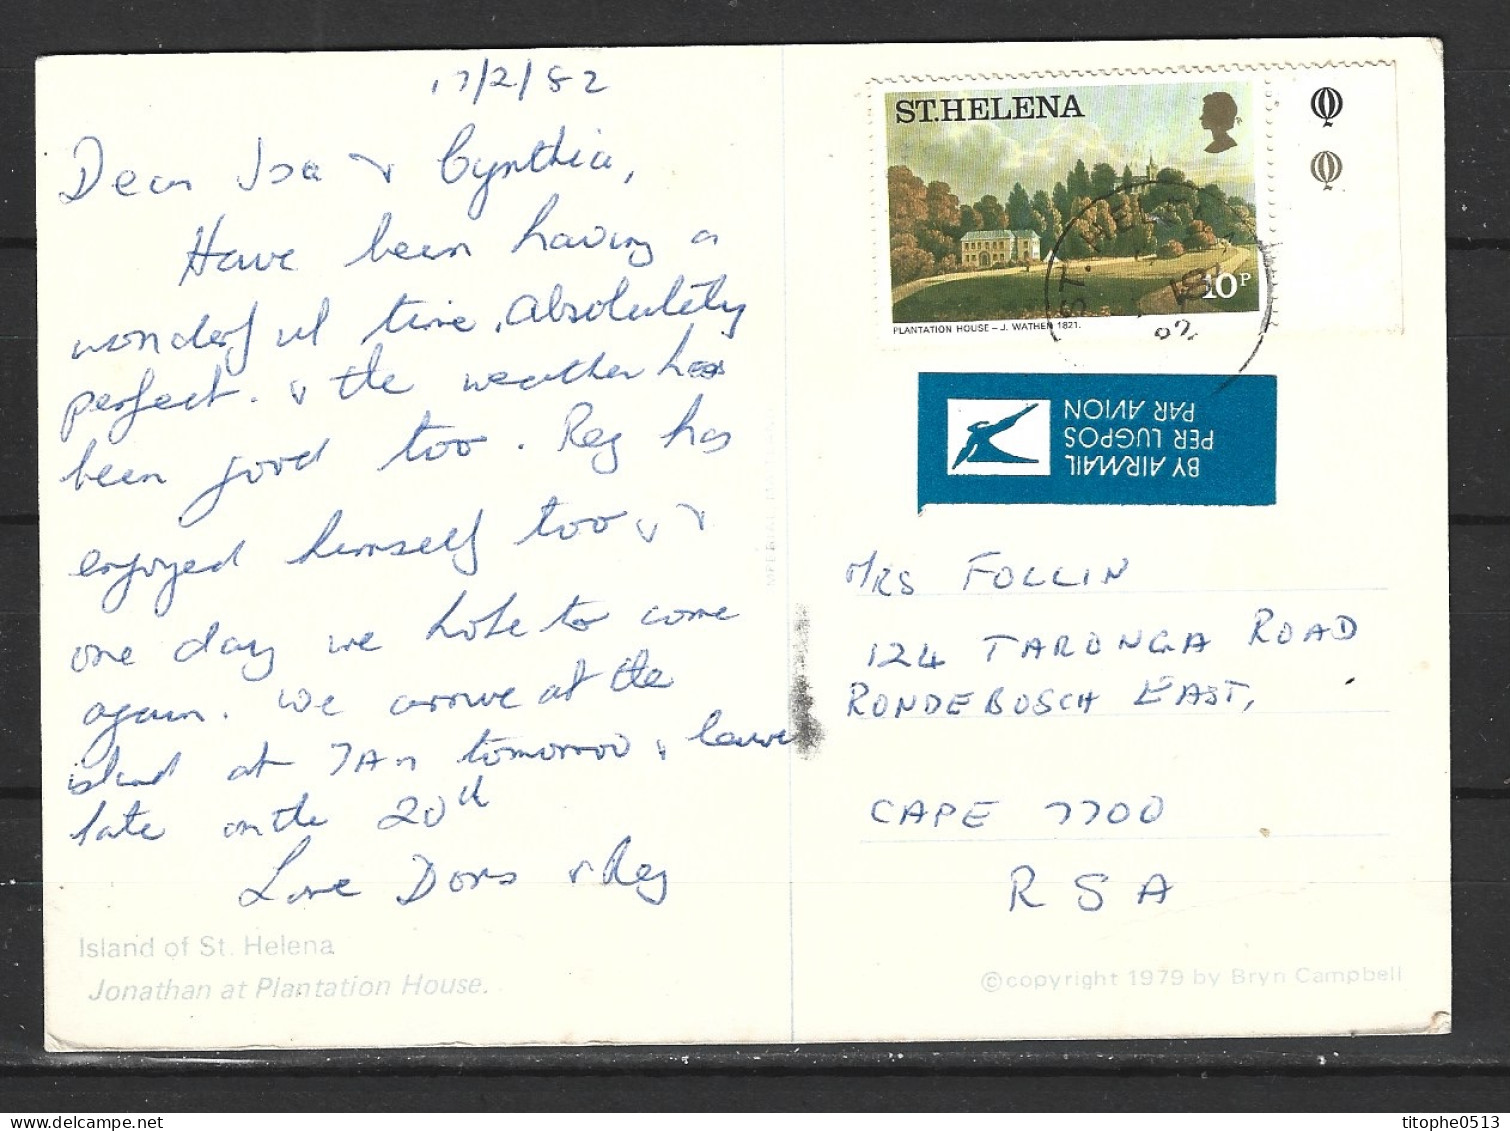 17/2/82
Dear Isa & Cynthia,
Have been having a
wonderful time, absolutely
perfect. & the weather has
been good too. Reg has
enjoyed himself too, &
one day we hope to come
again. We arrive at the
island at 7AM tomorrow & leave
late on the 20th
Love Doris & Reg
Island of St. Helena
Jonathan at Plantation House.
ST.HELENA
10P
PLANTATION HOUSE – J. WATHEN 1821.
ST. HELENA
82
BY AIRMAIL
PER LUGPOS
PAR AVION
MRS FOLLIN
124 TARONGA ROAD
RONDEBOSCH EAST,
CAPE 7700
RSA
©copyright 1979 by Bryn Campbell
titophe0513